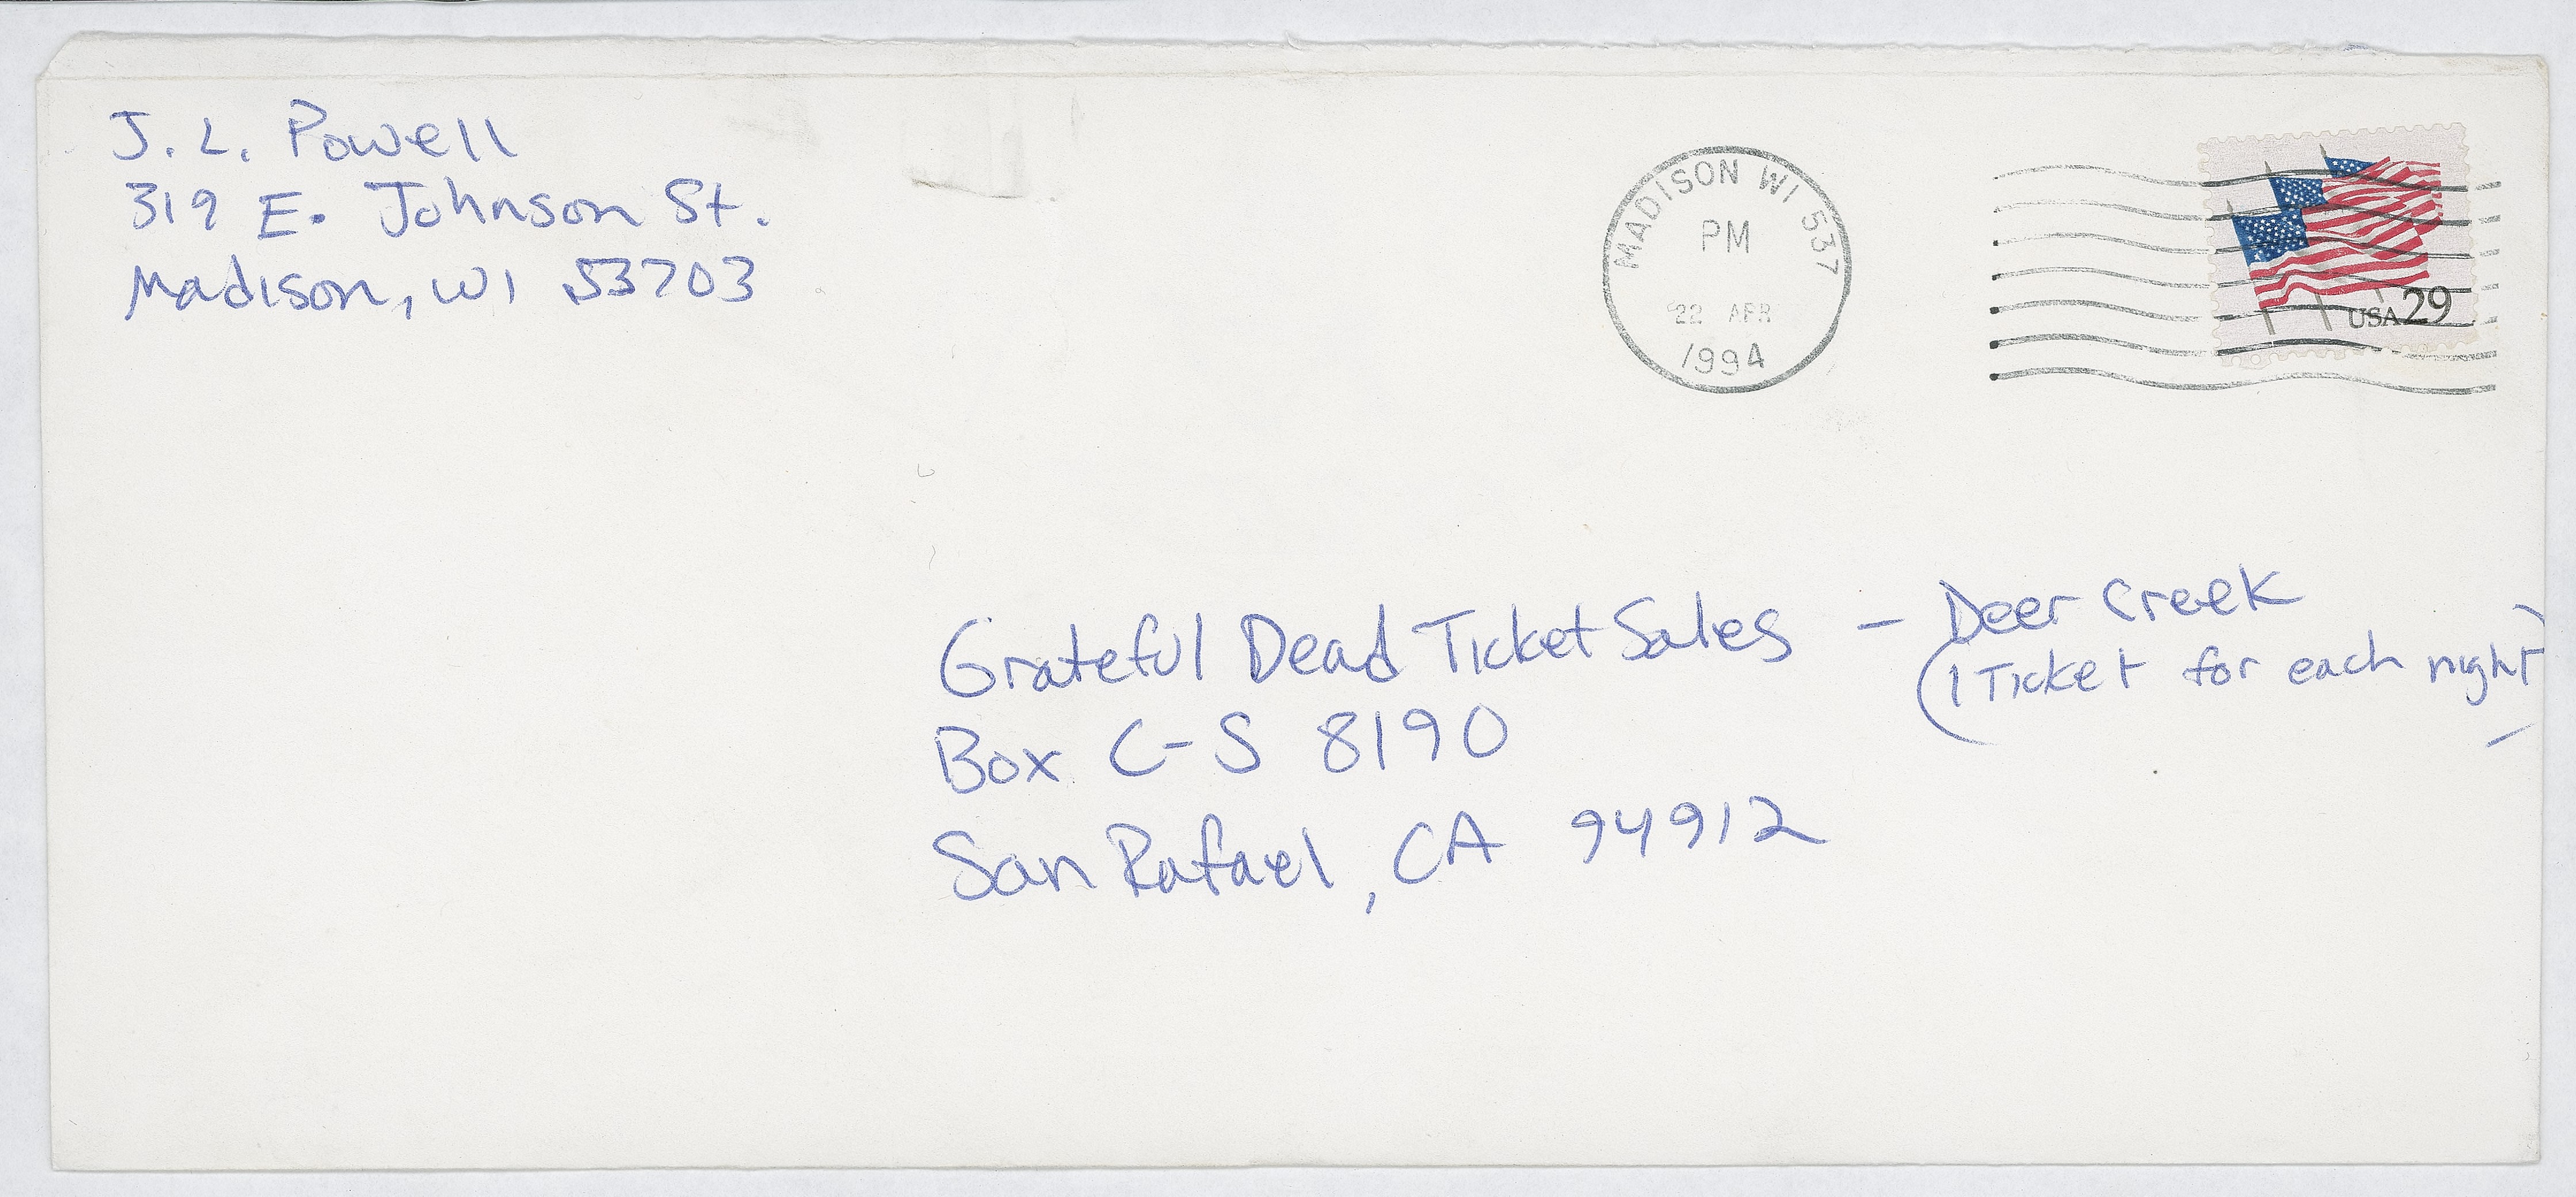 J. L. Powell
319 E. Johnson St.
Madison, WI 53703
MADISON WI 537
PM
22 APR
1994
USA 29
Grateful Dead Ticket Sales - Deer Creek
(1 Ticket for each night)
Box C-S 8190
San Rafael, CA 94912